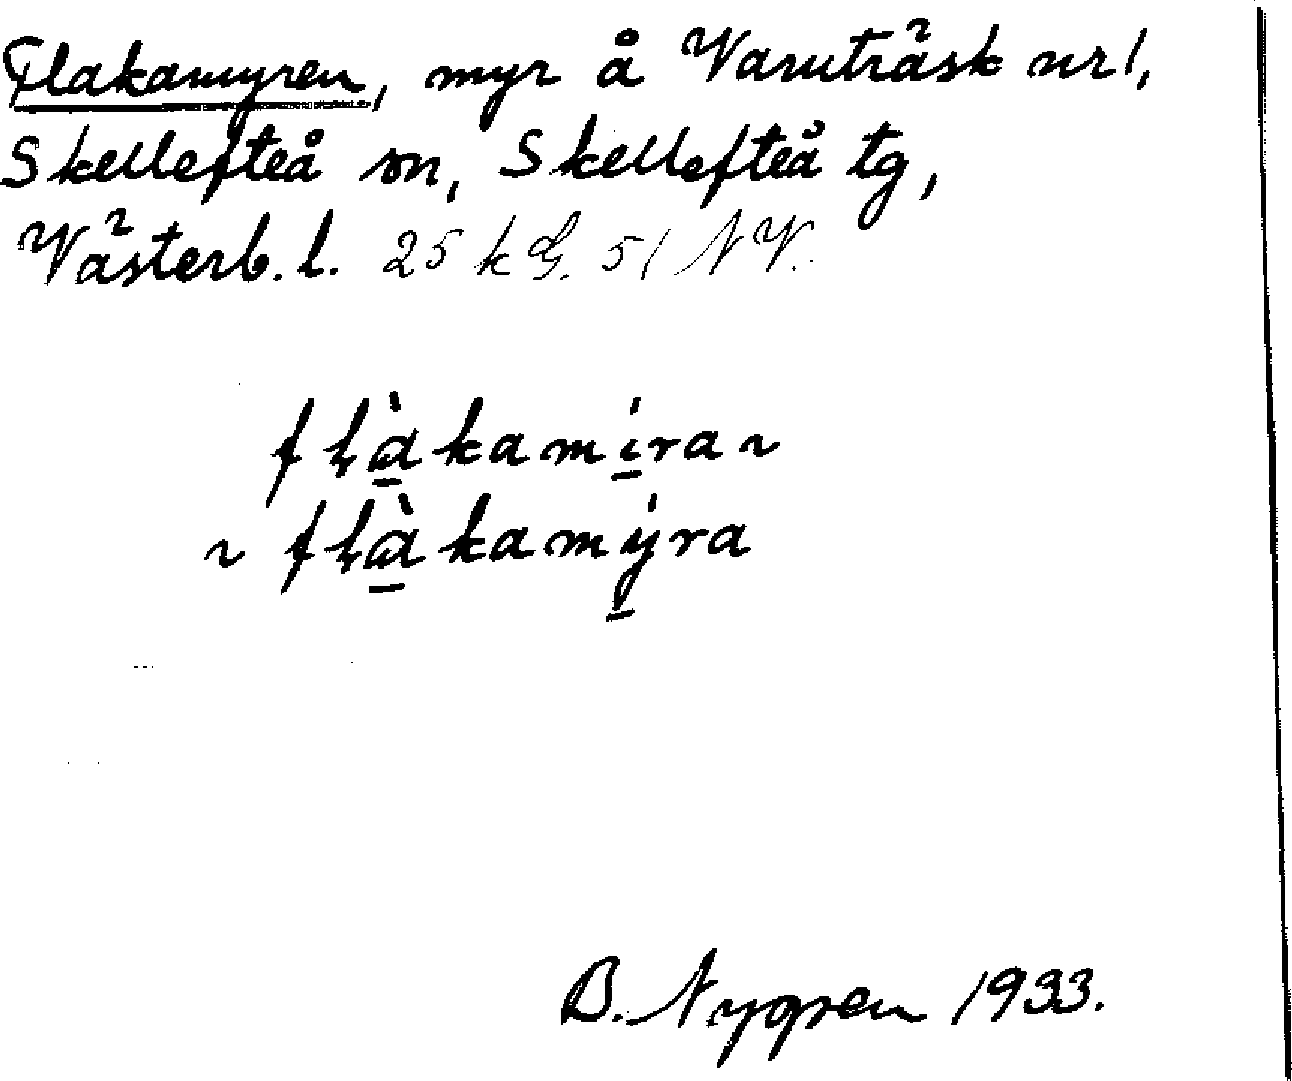 Flakamyren, myr å Varuträsk nr 1,
Skellefteå sn, Skellefteå tg,
Västerb. l. 25 k G. 51 NV.
fḷàkamíra ~
~ fḷàkamýra
B. Nygren 1933.